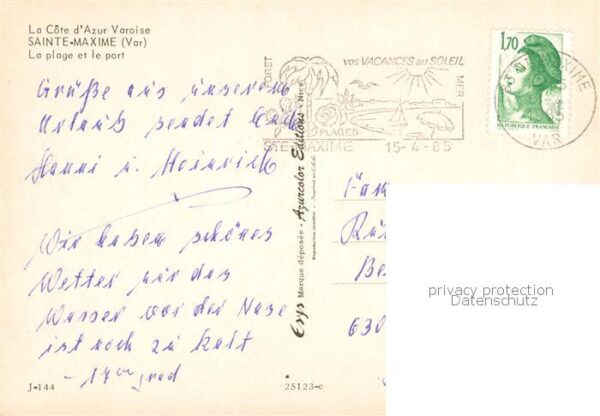 La Côte d'Azur Varoise
SAINTE-MAXIME (Var)
La plage et le port
Grüße aus unserem
Urlaub sendet Euch
Hanni u. Heinrich
Wir haben schönes
Wetter nur das
Wasser vor der Nase
ist noch zu kalt
- 17 grad
J-144
25123-c
Erys Marque déposée - Azurcolor Editions - Nice
FORET
vos VACANCES au SOLEIL
MER
PLAGES
STE MAXIME 15-4-85
1,70
REPUBLIQUE FRANÇAISE
MAXIME
VAR
Fam
Be
630
privacy protection
Datenschutz